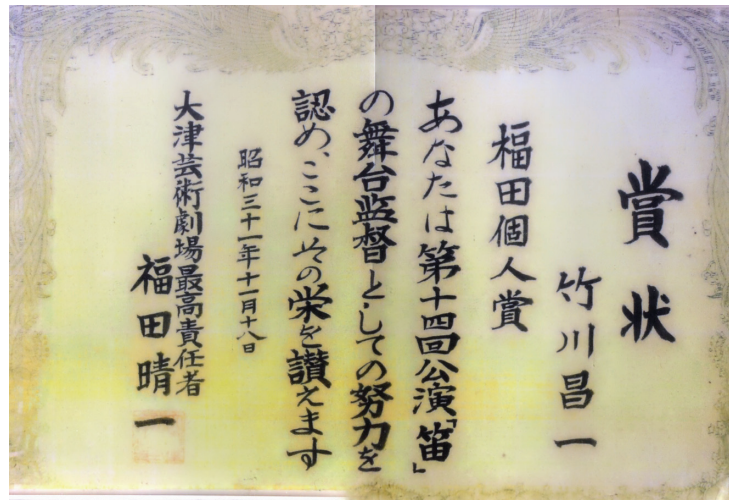 賞状
竹川昌一
福田個人賞
あなたは第十四回公演「笛」
の舞台監督としての努力を
認め、ここにその栄を讃えます
昭和三十一年十一月十八日
大津芸術劇場最高責任者
福田晴一